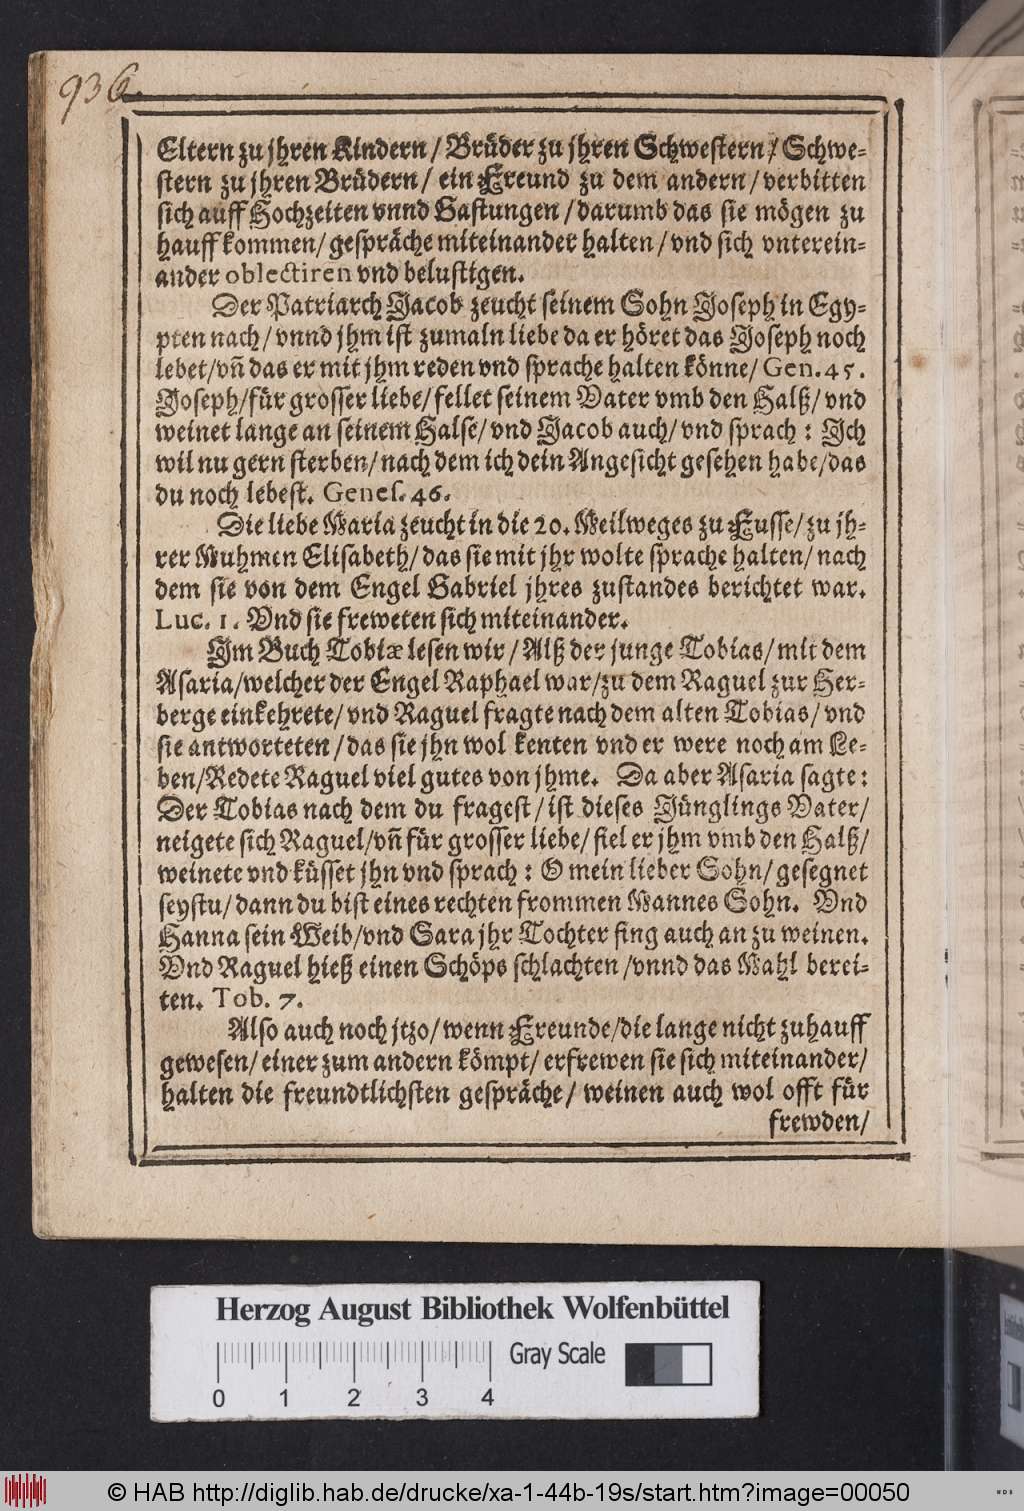 936.
Eltern zu jhren Kindern / Brüder zu jhren Schwestern / Schwe-
stern zu jhren Brüdern / ein Freund zu dem andern / verbitten
sich auff Hochzeiten vnnd Gastungen / darumb das sie mögen zu
hauff kommen / gespräche miteinander halten / vnd sich vnterein-
ander oblectiren vnd belustigen.
Der Patriarch Jacob zeucht seinem Sohn Joseph in Egy-
pten nach / vnnd jhm ist zumaln liebe da er höret das Joseph noch
lebet / vñ das er mit jhm reden vnd sprache halten könne / Gen. 45.
Joseph / für grosser liebe / fellet seinem Vater vmb den Halß / vnd
weinet lange an seinem Halse / vnd Jacob auch / vnd sprach : Ich
wil nu gern sterben / nach dem ich dein Angesicht gesehen habe / das
du noch lebest. Genes. 46.
Die liebe Maria zeucht in die 20. Meilweges zu Fusse / zu jh-
rer Muhmen Elisabeth / das sie mit jhr wolte sprache halten / nach
dem sie von dem Engel Gabriel jhres zustandes berichtet war.
Luc. 1. Vnd sie freweten sich miteinander.
Im Buch Tobiæ lesen wir / Alß der junge Tobias / mit dem
Asaria / welcher der Engel Raphael war / zu dem Raguel zur Her-
berge einkehrete / vnd Raguel fragte nach dem alten Tobias / vnd
sie antworteten / das sie jhn wol kenten vnd er were noch am Le-
ben / Redete Raguel viel gutes von jhme. Da aber Asaria sagte :
Der Tobias nach dem du fragest / ist dieses Jünglings Vater /
neigete sich Raguel / vñ für grosser liebe / fiel er jhm vmb den Halß /
weinete vnd küsset jhn vnd sprach : O mein lieber Sohn / gesegnet
seystu / dann du bist eines rechten frommen Mannes Sohn. Vnd
Hanna sein Weib / vnd Sara jhr Tochter fing auch an zu weinen.
Vnd Raguel hieß einen Schöps schlachten / vnnd das Mahl berei-
ten. Tob. 7.
Also auch noch jtzo / wenn Freunde / die lange nicht zuhauff
gewesen / einer zum andern kömpt / erfrewen sie sich miteinander /
halten die freundtlichsten gespräche / weinen auch wol offt für
frewden /
Herzog August Bibliothek Wolfenbüttel
0 1 2 3 4 Gray Scale
© HAB http://diglib.hab.de/drucke/xa-1-44b-19s/start.htm?image=00050